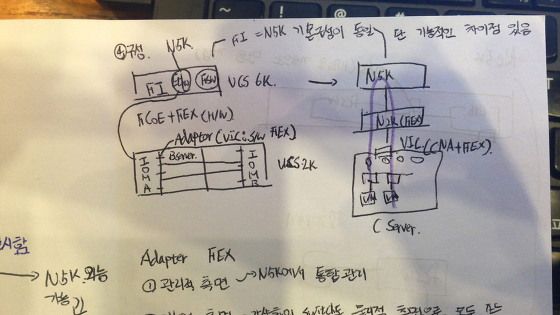 ④구성. N5K FI = N5K 기본구성이 동일 단 기능적인 차이점 있음
FI Eth FSW UCS 6K. → N5K
FCoE + FEX (H/W) N2K (FEX)
Adaptor (VIC: S/W FEX) VIC (CNA+FEX).
IOMA B server IOMB UCS 2K
VM VM
C Server.
Adapter FEX
→ N5K
기능
① 관리적 측면 → N5K에서 통합관리